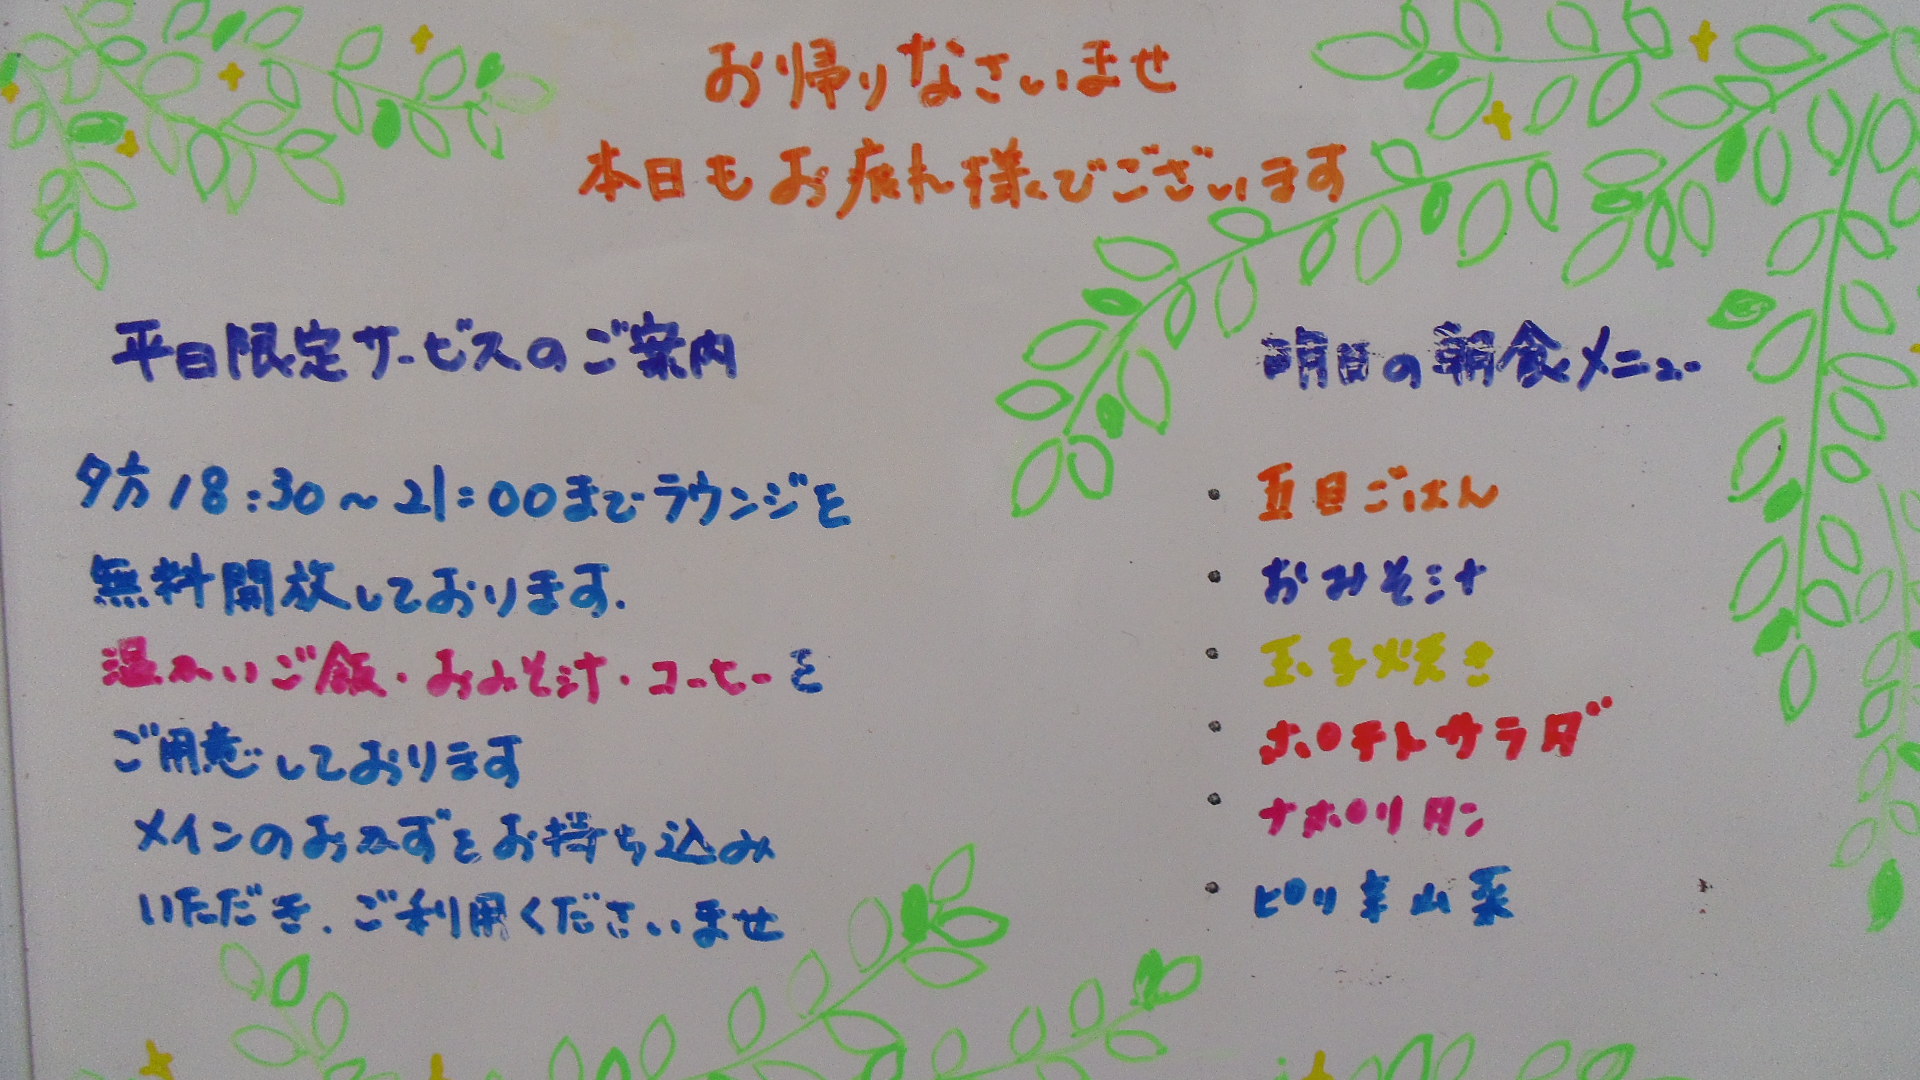 お帰りなさいませ
本日もお疲れ様でございます
平日限定サービスのご案内
夕方18:30～21:00までラウンジを
無料開放しております.
温かいご飯・おみそ汁・コーヒーを
ご用意しております
メインのおかずをお持ち込み
いただき、ご利用くださいませ
明日の朝食メニュー
・五目ごはん
・おみそ汁
・玉子焼き
・ポテトサラダ
・ナポリタン
・ピリ辛山菜